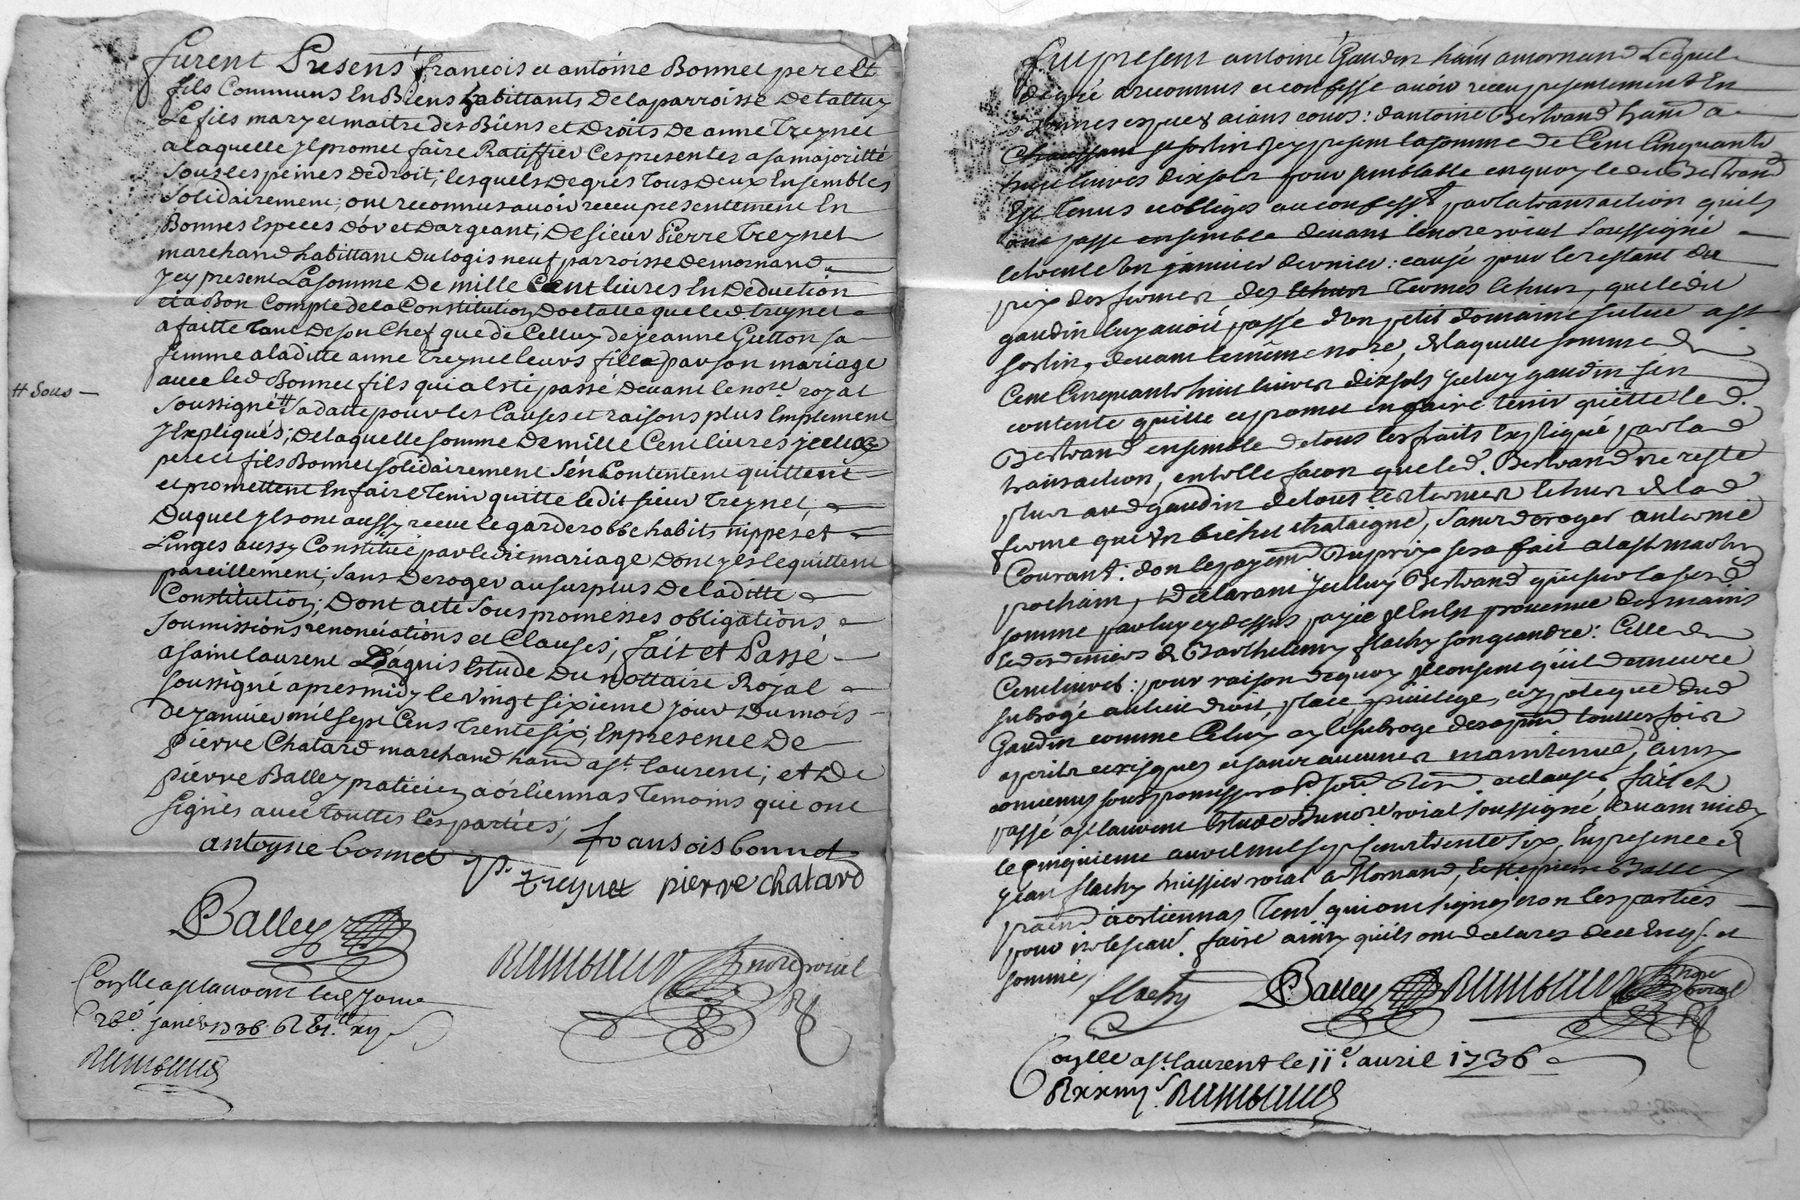 furent Presens francois et antoine Bonnet pere et
fils Communs En Biens habittants De la parroisse De talluy
Le fils mary et maitre des Biens et Droits De anne Treynet
a laquelle Il promet faire Ratiffier Ces presentes a sa majoritté
sous les peines De droit; lesquels De grés tous Deux Ensembles
solidairement; ont reconnus auoir receu presentement En
Bonnes Especes D'or et D'argeant; De sieur Pierre Treynet
marchand habittant Du logis neuf parroisse De mornand
Icy present La somme De mille Cent liures En Deduction
et a Bon Compte De la Constitution Dotalle que led. treynet
a faitte tant De son Chef que de Celluy de jeanne Gutton sa
femme a laditte anne Treynet leurs fille par son mariage
auec led Bonnet fils qui a Esté passé Deuant le nore. royal
# sous
soussigné # sa datte pour les Causes et raisons plus Emplement
Y Expliqués; De laquelle somme De mille Cent liures jceux
pere et fils Bonnet solidairement s'en Contentent quittent
et promettent En faire tenir quitte ledit sieur Treynet,
Duquel Ils ont aussy receu le garderobbe habits nippes et
Linges aussy Constitué par ledit mariage Dont Ils le quittent
pareillement; sans Deroger au surplus De laditte
Constitution; Dont acte sous promesses obligations
soumissions renonciations et Clauses; fait et Passé
a saint laurent D'agnis Estude Du nottaire Royal
soussigné apres midy le vingt sixieme jour Du mois
De januier mil sept Cens Trente six, En presence De
pierre Chatard marchand hant a st. laurent; et De
pierre Balley praticien a orliennas Temoins qui ont
signés auec touttes les parties;
antoyne bonnet fransois bonnet
p. treynet pierre chatard
Balley
nore roial
Conlle a st laurent le
26e. janer 1736
fut present antoine Gaudin hant a mornand Lequel
de gré a reconnus et confessé auoir receu presentement En
Especes aians cours: d'antoine Bertrand hant a
st sorlin Icy present la somme de Cent Cinquante
huit liures dix sols pour semblable en quoy led Bertrand
Est tenus et obligés au confesst par la transaction qu'ils
ont passé ensemble deuant le nore roial soussigné
le trente Un januier dernier: causé pour le restant du
prix des fermes des termes Echus, que ledit
gaudin luy auoit passé d'un petit domaine situé a st
sorlin, deuant le même nore, de laquelle somme de
Cent Cinquante huit liures dix sols Iceluy gaudin s'en
contente quitte et promet en faire tenir quitte led.
Bertrand ensemble de tous les faits Expliqué par lad
transaction, en telle façon que led. Bertrand ne reste
plus aud gaudin de tous les termes Echus de lad
ferme qu'Un bichet chataigne, sans deroger au terme
Courant: dont le payemt Du prix sera fait a la st martin
prochain, Declarant Icelluy Bertrand que sur la susd
somme par luy cy dessus payée Il en Est prouenue des mains
et des deniers de Barthelemy flachy son geandre: Celle de
Cent liures: pour raison de quoy Il consent qu'il demeure
subrogé au lieu droit, place priuilege, et ypoteque dud
Gaudin comme Celuy cy le subroge des a pnt touttesfois
a perils et risques et sans aucunes maintenue, ainsy
conuenus sous promisses et clauses, fait et
passé a st laurent Estude Du nore roial soussigné, auant midy
le cinquieme auril mil sept cens trente six, En presence de
jean flachy huissier roial a Mornand, et de pierre Balley
praen a orliennas Tems qui ont signés non les parties
pour ne le scauoir faire ainsy qu'ils ont declarés de ce Enqs. et
sommé
flachy Balley nore roial
Conlle a st. laurent le 11e. auril 1736